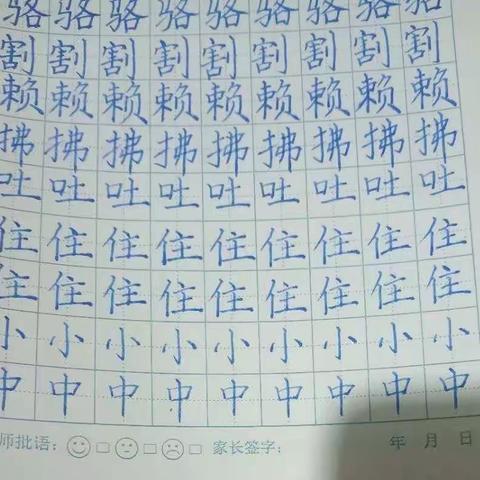 骆 骆 骆 骆 骆 骆 骆 骆 骆
割 割 割 割 割 割 割 割 割
赖 赖 赖 赖 赖 赖 赖 赖 赖
拂 拂 拂 拂 拂 拂 拂 拂 拂
吐 吐 吐 吐 吐 吐 吐 吐 吐
住 住 住 住 住 住 住 住 住
住 住 住 住 住 住 住 住 住
小 小 小 小 小 小 小 小 小
中 中 中 中 中 中 中 中 中
师批语: 家长签字: 年 月 日